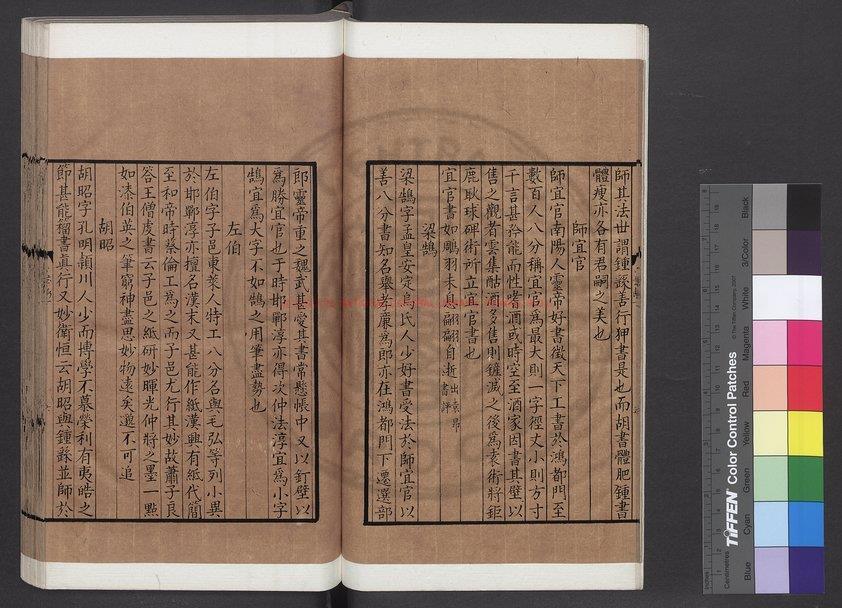 師其法世謂鍾繇善行狎書是也而胡書體肥鍾書
體瘦亦各有君嗣之美也
師宜官
師宜官南陽人靈帝好書徵天下工書於鴻都門至
數百人八分稱宜官為最大則一字徑丈小則方寸
千言甚矜能而性嗜酒或時空至酒家因書其壁以
售之觀者雲集酤酒多售則鏟滅之後為袁術將鉅
鹿耿球碑術所立宜官書也
宜官書如鵰羽未息翩翩自逝出袁昂書評
梁鵠
梁鵠字孟皇安定烏氏人少好書受法於師宜官以
善八分書知名舉孝廉為郎亦在鴻都門下遷選部
郎靈帝重之魏武甚愛其書常懸帳中又以釘壁以
為勝宜官也于時邯鄲淳亦得次仲法淳宜為小字
鵠宜為大字不如鵠之用筆盡勢也
左伯
左伯字子邑東萊人特工八分名與毛弘等列小異
於邯鄲淳亦擅名漢末又甚能作紙漢興有紙代簡
至和帝時蔡倫工為之而子邑尤行其妙故蕭子良
答王僧虔書云子邑之紙研妙暉光仲將之墨一點
如漆伯英之筆窮神盡思妙物遠矣邈不可追
胡昭
胡昭字孔明潁川人少而博學不慕榮利有夷皓之
節甚能籀書真行又妙衛恒云胡昭與鍾繇並師於
TIFFEN Color Control Patches
© The Tiffen Company, 2007
Inches
Centimetres
Blue
Cyan
Green
Yellow
Red
Magenta
White
3/Color
Black